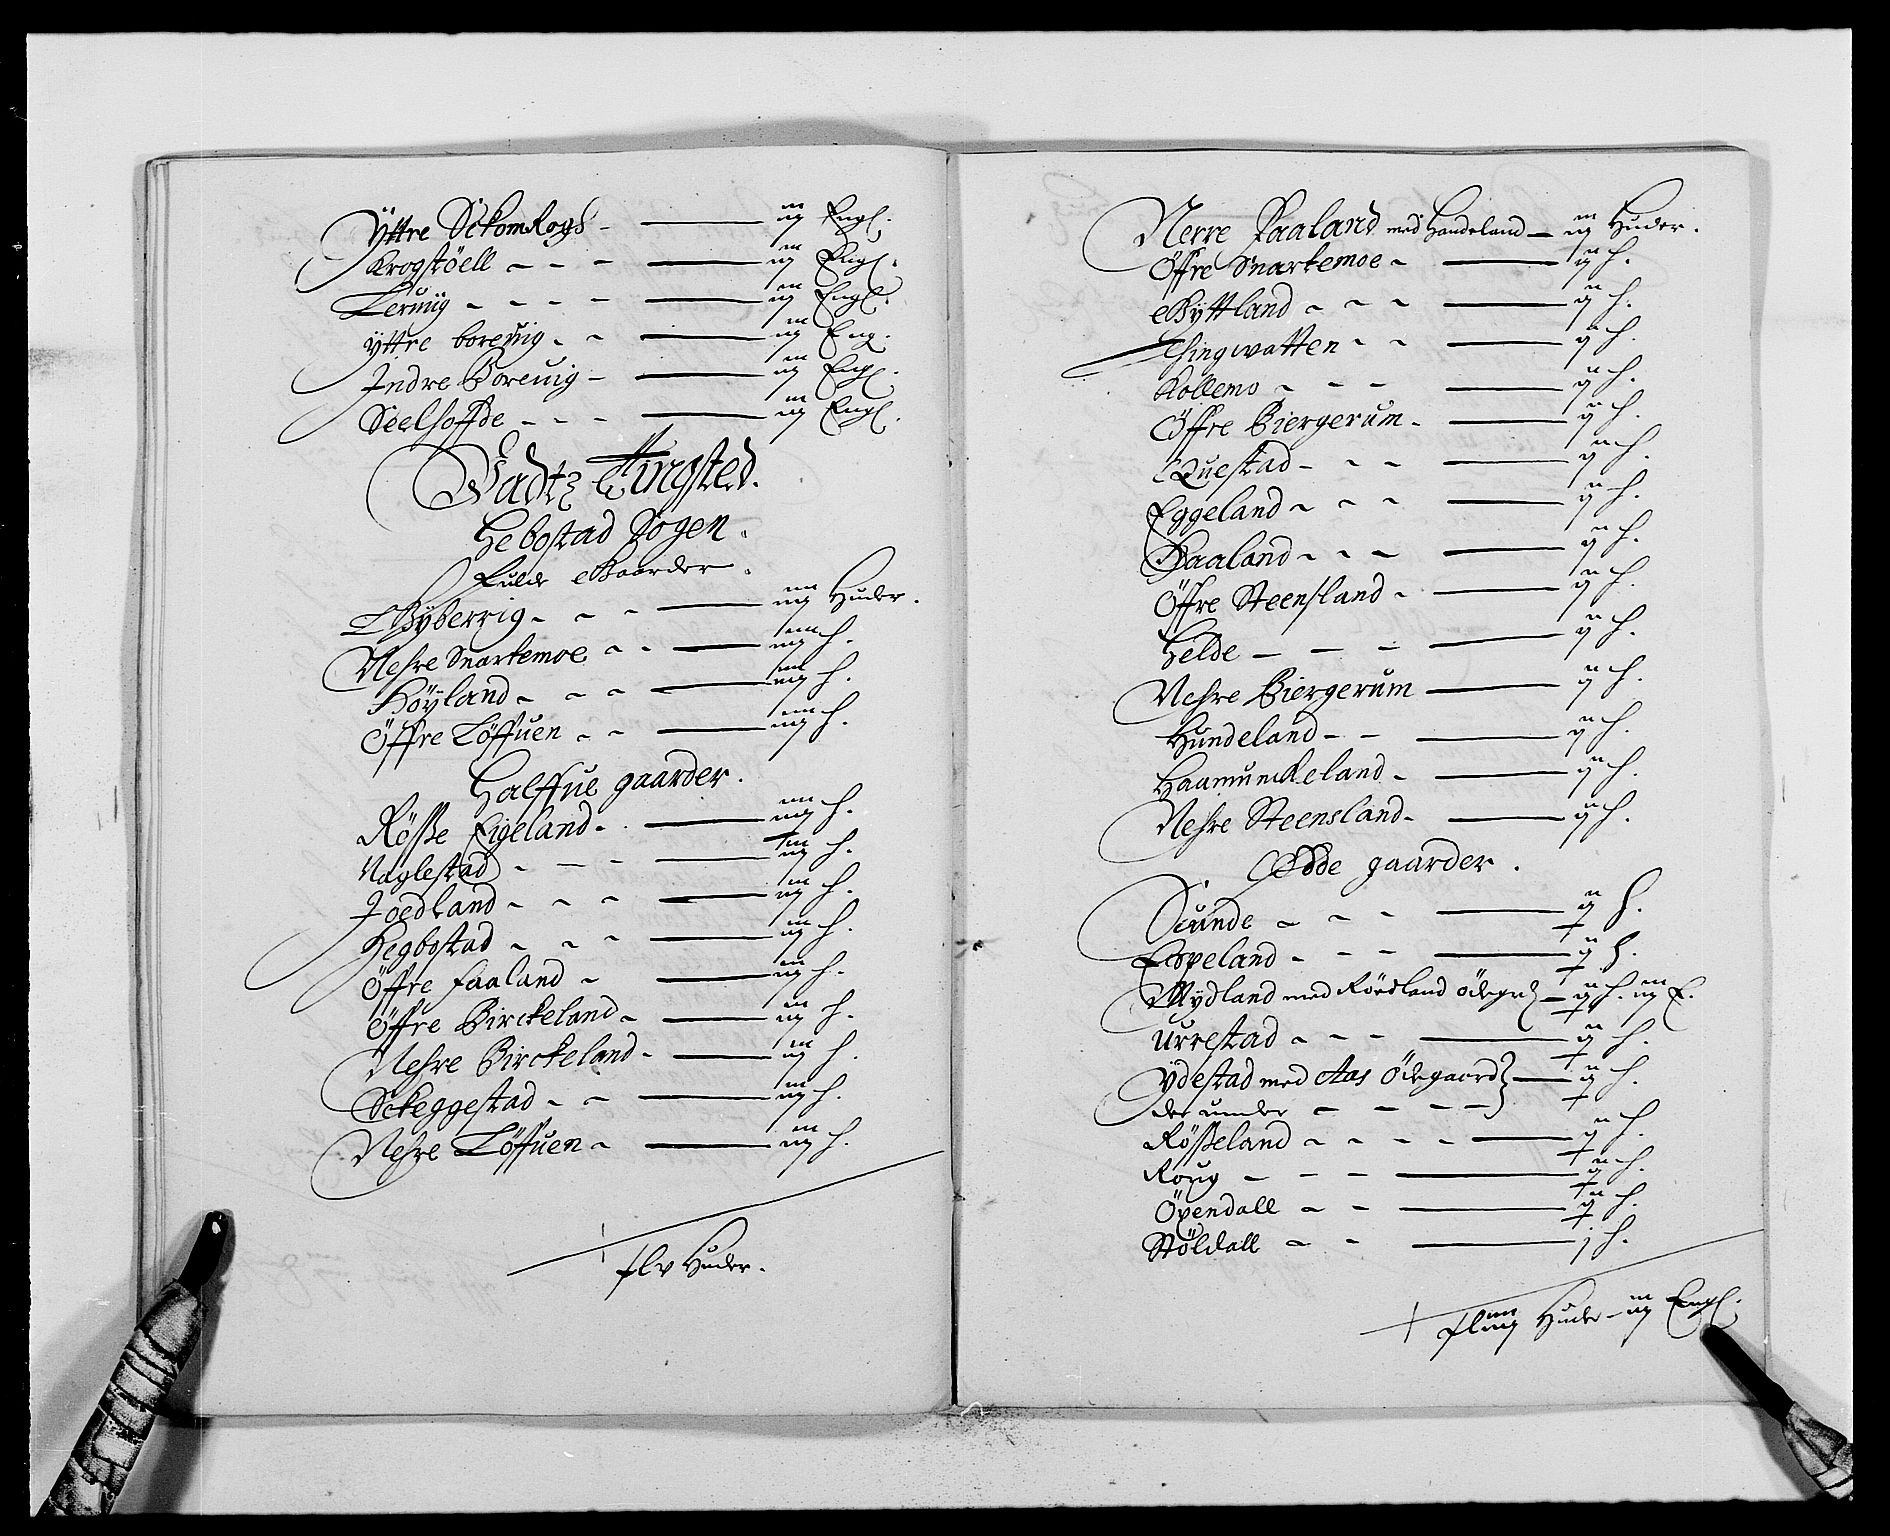 Yttre Sckomrogh - iij Engl.
Krogstöell - - - iij Engl.
Leruiig - - - - iij Engl.
yttre boreuiig - - iij Eng.
Indre Boreuiig - iij Engl.
Seelhoffde - - - iij Engl.
Vadtz Tingsted.
Hebostad Sogen.
Fulde Gaarder.
Gÿberrig - - - iiij Huder.
Nehre Snartemoe - - iiij h.
Höÿland - - - iiij h.
Öffre Löffuen - - iiij h.
Halffue gaarder.
Rösse Eigeland - - iiij h.
Naglestad - - - iij h.
Joedland - - - iij h.
Hegbostad - - - iij h.
Öffre faaland - iij h.
Öffre Birckeland - iij h.
Nehre Birckeland - iij h.
Sckeggestad - - iij h.
Nehre Löffuen - iij h.
flv Huder.
Nerre Faaland med Handeland - iij Huder.
Öffre Snartemoe - ij h.
Gÿttland - - - ij h.
Tingwatten - - ij h.
Kollemo - - - ij h.
Öffre Biergerum - ij h.
Questad - - - ij h.
Eggeland - - - ij h.
Haaland - - - ij h.
Öffre Steensland - ij h.
Helde - - - ij h.
Nehre Biergerum ij h.
Hundeland - - ij h.
Haamunckeland - ij h.
Nehre Steensland - ij h.
Ödde gaarder.
Sunde - - - ij h.
Espeland - - - ij h.
Mydland med Röedland ödegrd - ij h. iij E.
Urrestad - - - ij h.
Ydestad med Aas Ödegaard
der under - - - - ij h.
Rösseland - - - - ij h.
Röÿg - - - ij h.
Öpendall - - ij h.
Stöldall - - j h.
fliiij Huder - iij Engl.